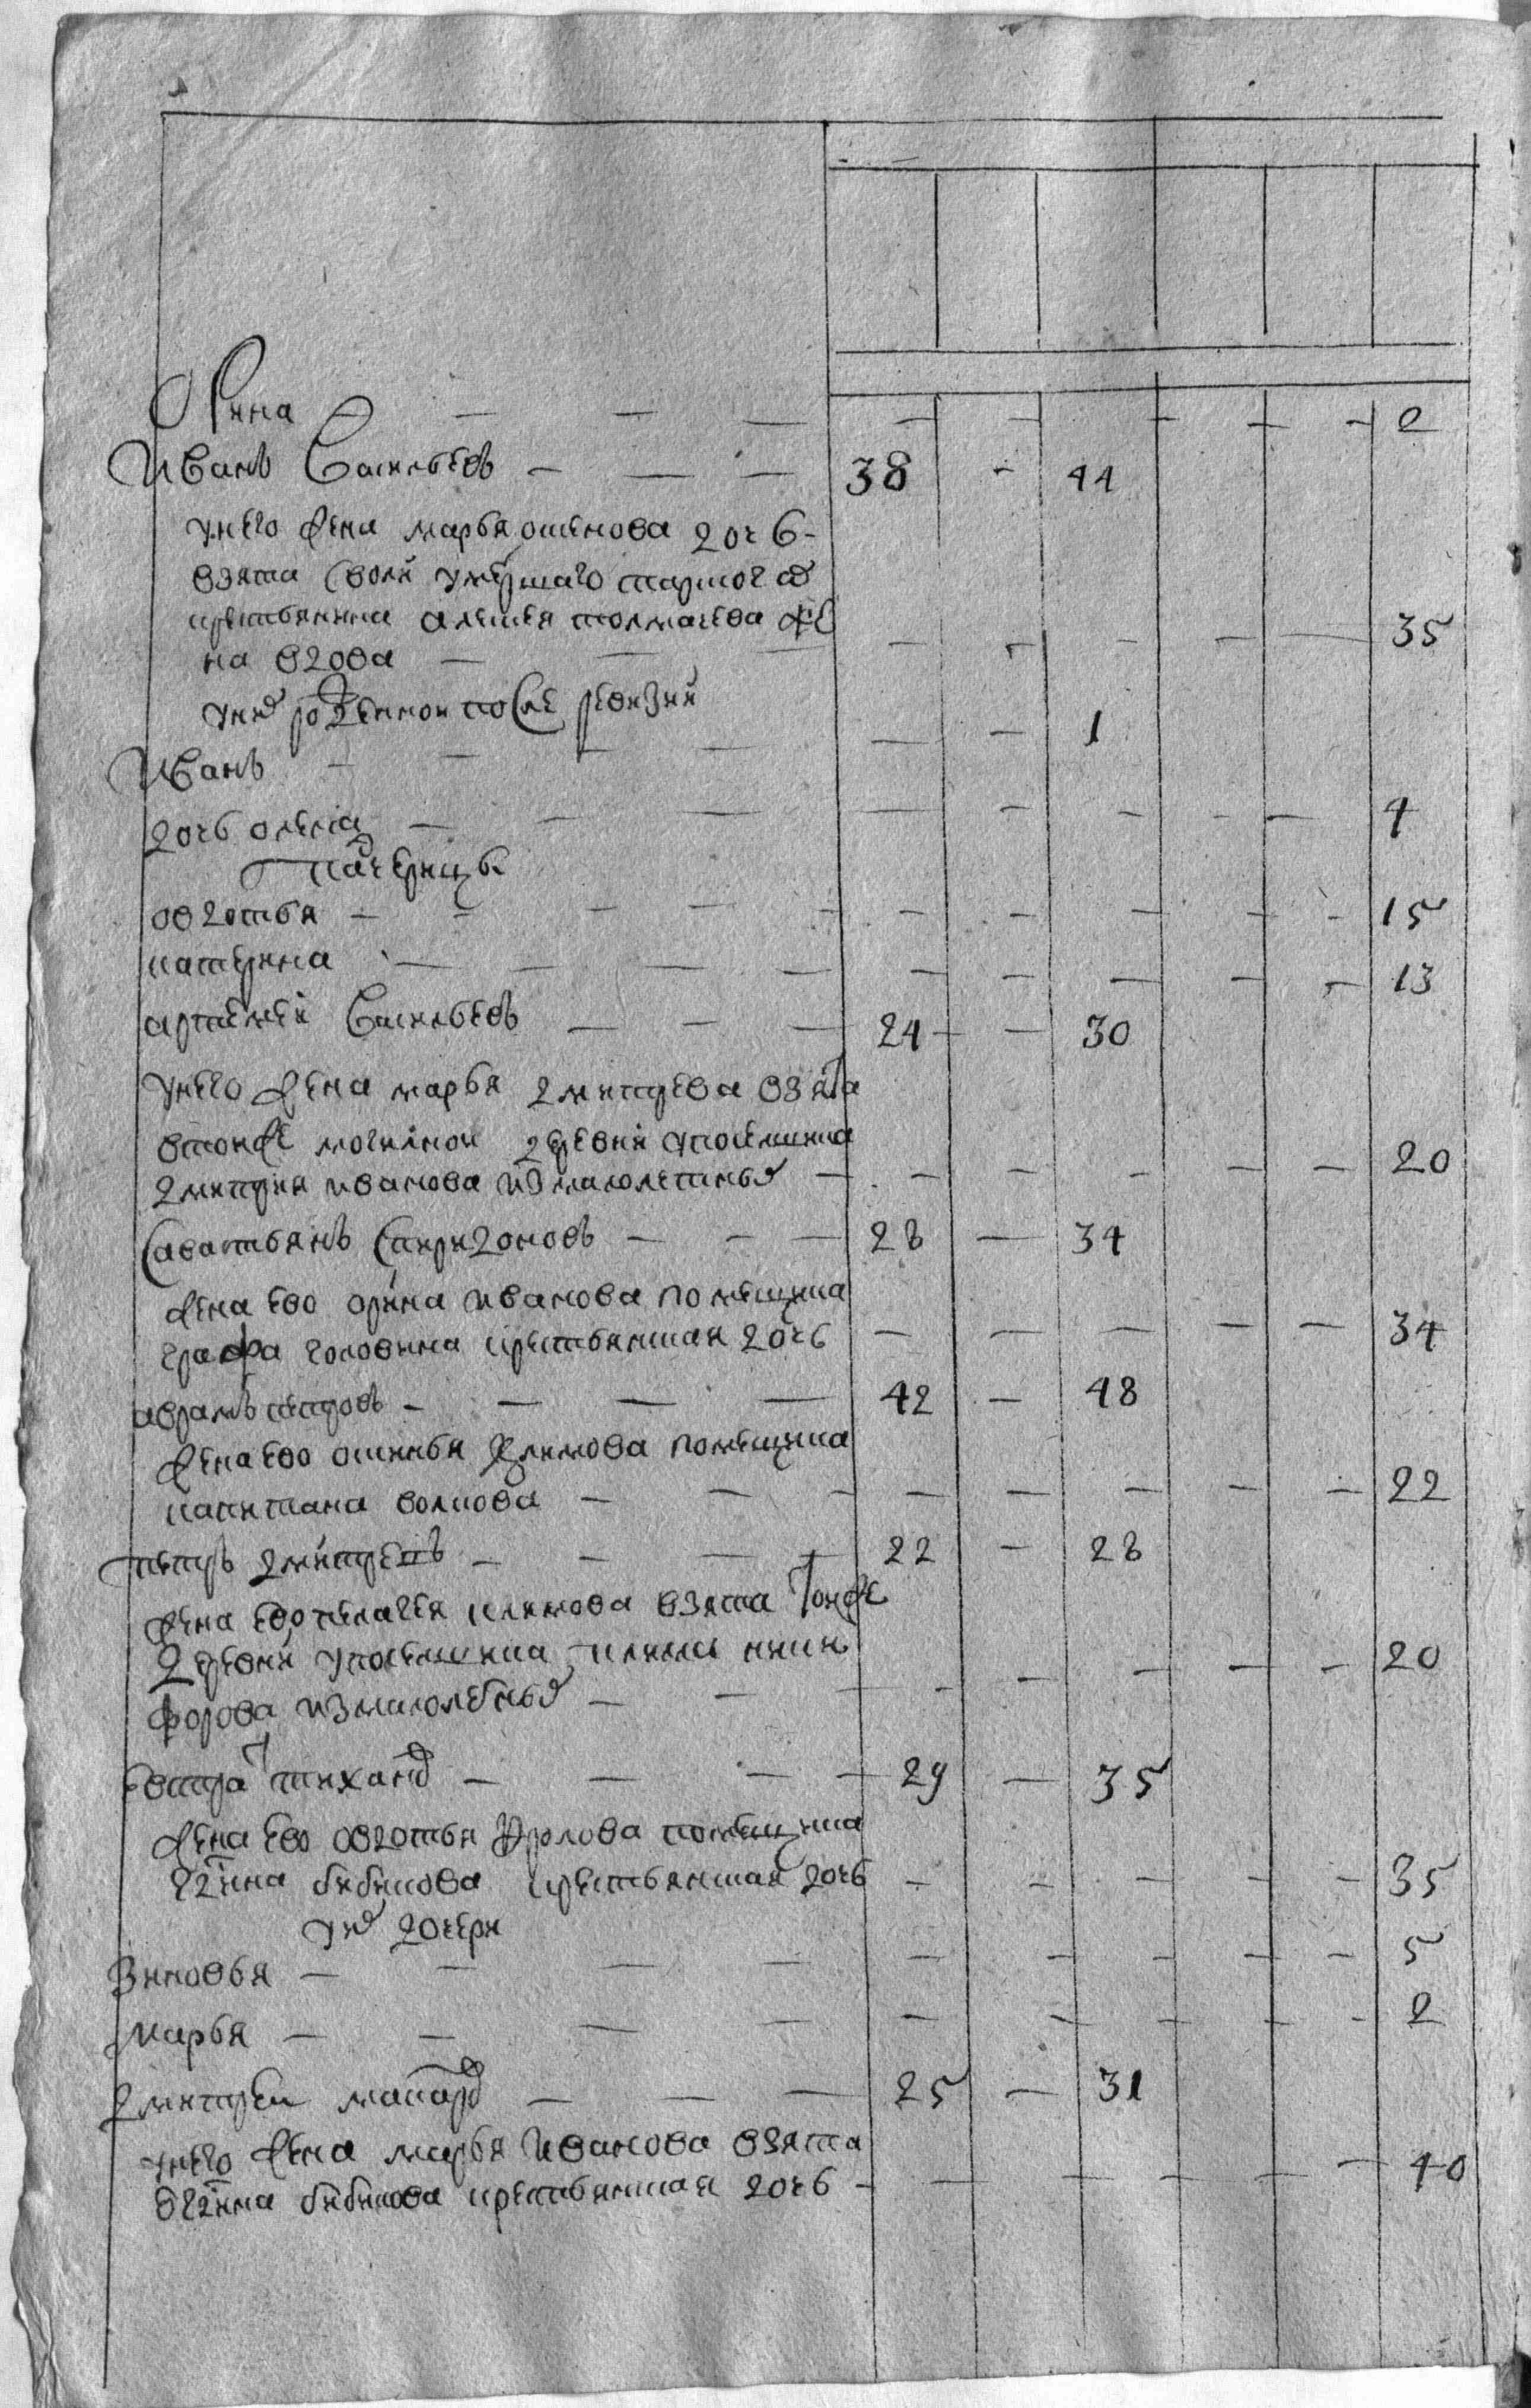 Орина — — — — — — — — 2
Иванъ Васильевъ — — — 38 — 44
у него жена марья осипова дочь
взята свояи умершаго
крестьянина алексея толмачева же
на вдова — — — — — — — — 35
у них рожденнои после ревизии
Иванъ — — — — — — 1
дочь олена — — — — — — — — 4
падчерицы
овдотья — — — — — — — — — — 15
катерина — — — — — — — — — 13
артемеи Васильевъ — — — 24 — 30
у него жена марья дмитрева взята
втоиже деревни у
дмитрия иванова измалолетных — — — — — — 20
Савастьянъ Спиридоновъ — — — 28 — 34
жена ево орина иванова помещика
графа головина крестьянская дочь — — — — — 34
аврамъ петровъ — — — — 42 — 48
жена ево климова помещика
капитана волкова — — — — — — — — 22
петръ дмитреевъ — — — 22 — 28
жена ево пелагея климова взята тоиже
деревни у клима ники
форова измалолетных — — — — — — — — 20
Евстрат тиханов — — — — 29 — 35
жена ево овдотья фролова помещика
бибикова крестьянская дочь — — — — — 35
у них дочери
Зиновья — — — — — — — — — 5
марья — — — — — — — — — 2
дмитреи макаров — — — 25 — 31
у него жена марья Иванова взята
бибикова крестьянская дочь — — — — — — 40